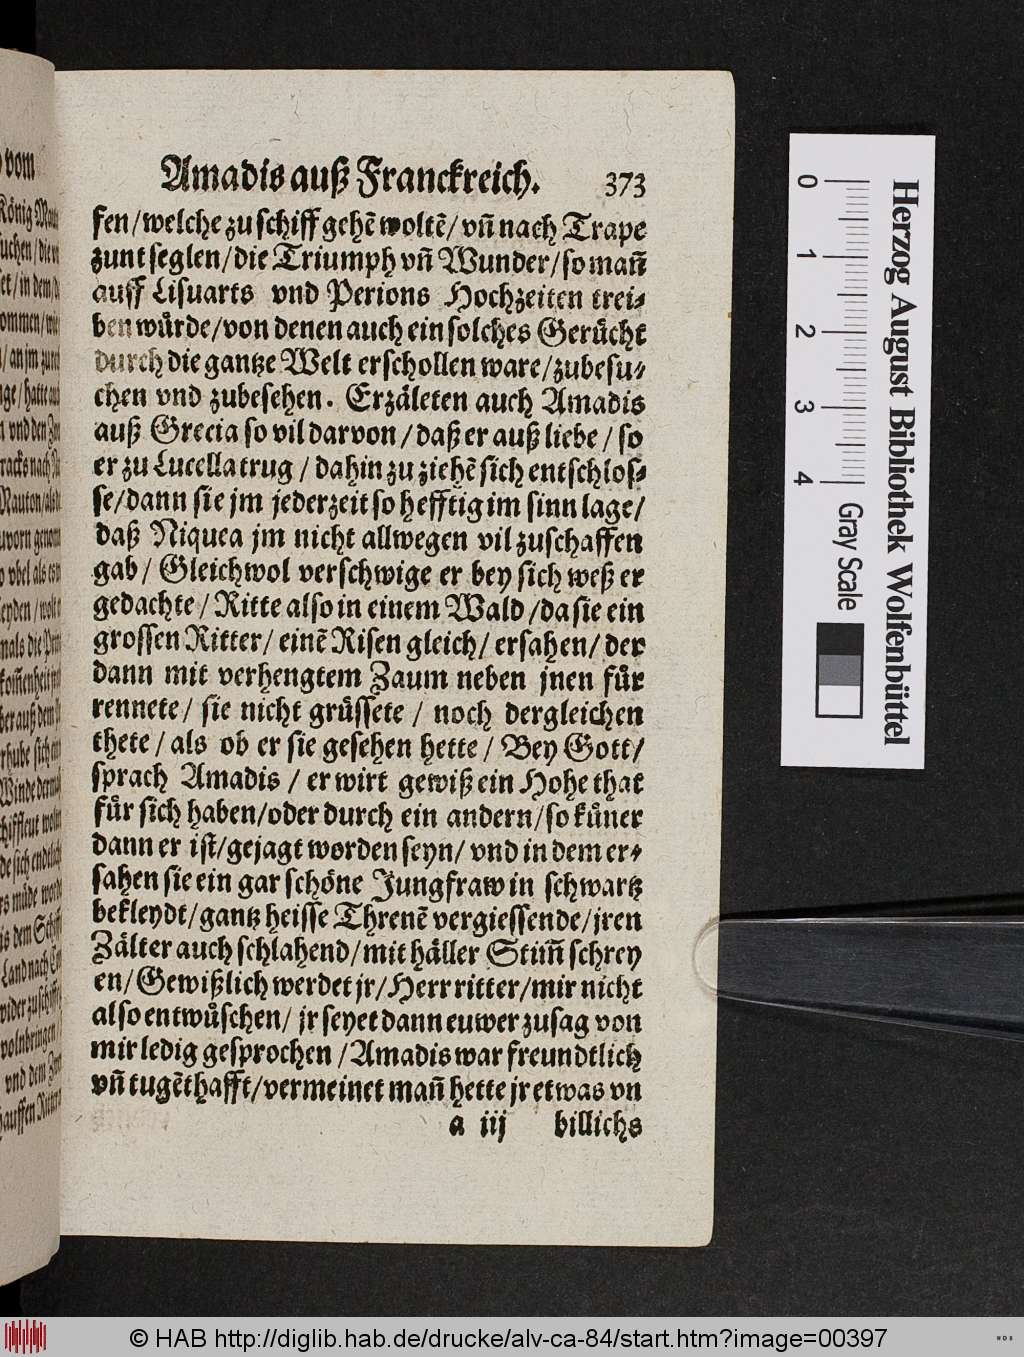 Amadis auß Franckreich. 373
fen/welche zu schiff gehẽ woltẽ/vñ nach Trape
zunt seglen/die Triumph vñ Wunder/so mañ
auff Lisuarts vnd Perions Hochzeiten trei-
ben wuͤrde/von denen auch ein solches Geruͤcht
durch die gantze Welt erschollen ware/zubesu-
chen vnd zubesehen. Erzaͤleten auch Amadis
auß Grecia so vil darvon/daß er auß liebe/so
er zu Lucella trug/dahin zu ziehẽ sich entschlos-
se/dann sie jm jederzeit so hefftig im sinn lage/
daß Niquea jm nicht allwegen vil zuschaffen
gab/Gleichwol verschwige er bey sich weß er
gedachte/Ritte also in einem Wald/da sie ein
grossen Ritter/einẽ Risen gleich/ersahen/der
dann mit verhengtem Zaum neben jnen fuͤr
rennete/sie nicht gruͤssete/noch dergleichen
thete/als ob er sie gesehen hette/Bey Gott/
sprach Amadis/er wirt gewiß ein Hohe that
fuͤr sich haben/oder durch ein andern/so kuͤner
dann er ist/gejagt worden seyn/vnd in dem er-
sahen sie ein gar schoͤne Jungfraw in schwartz
bekleydt/gantz heisse Threnẽ vergiessende/jren
Zaͤlter auch schlahend/mit haͤller Stim̃ schrey
en/Gewißlich werdet jr/Herr ritter/mir nicht
also entwuͤschen/jr seyet dann euwer zusag von
mir ledig gesprochen/Amadis war freundtlich
vñ tugẽthafft/vermeinet mañ hette jr etwas vn
a iij billichs
Herzog August Bibliothek Wolfenbüttel
0 1 2 3 4
Gray Scale
© HAB http://diglib.hab.de/drucke/alv-ca-84/start.htm?image=00397